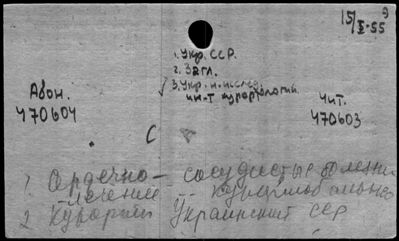 15/X-55
1. Укр. ССР.
2. Загл.
3. Укр. н.-исслед.
ин-т курортологии
Абон.
470604
Чит.
470603
С
1. Сердечно- сосудистые болезни
-лечение
2. Курорты Украинский ССР